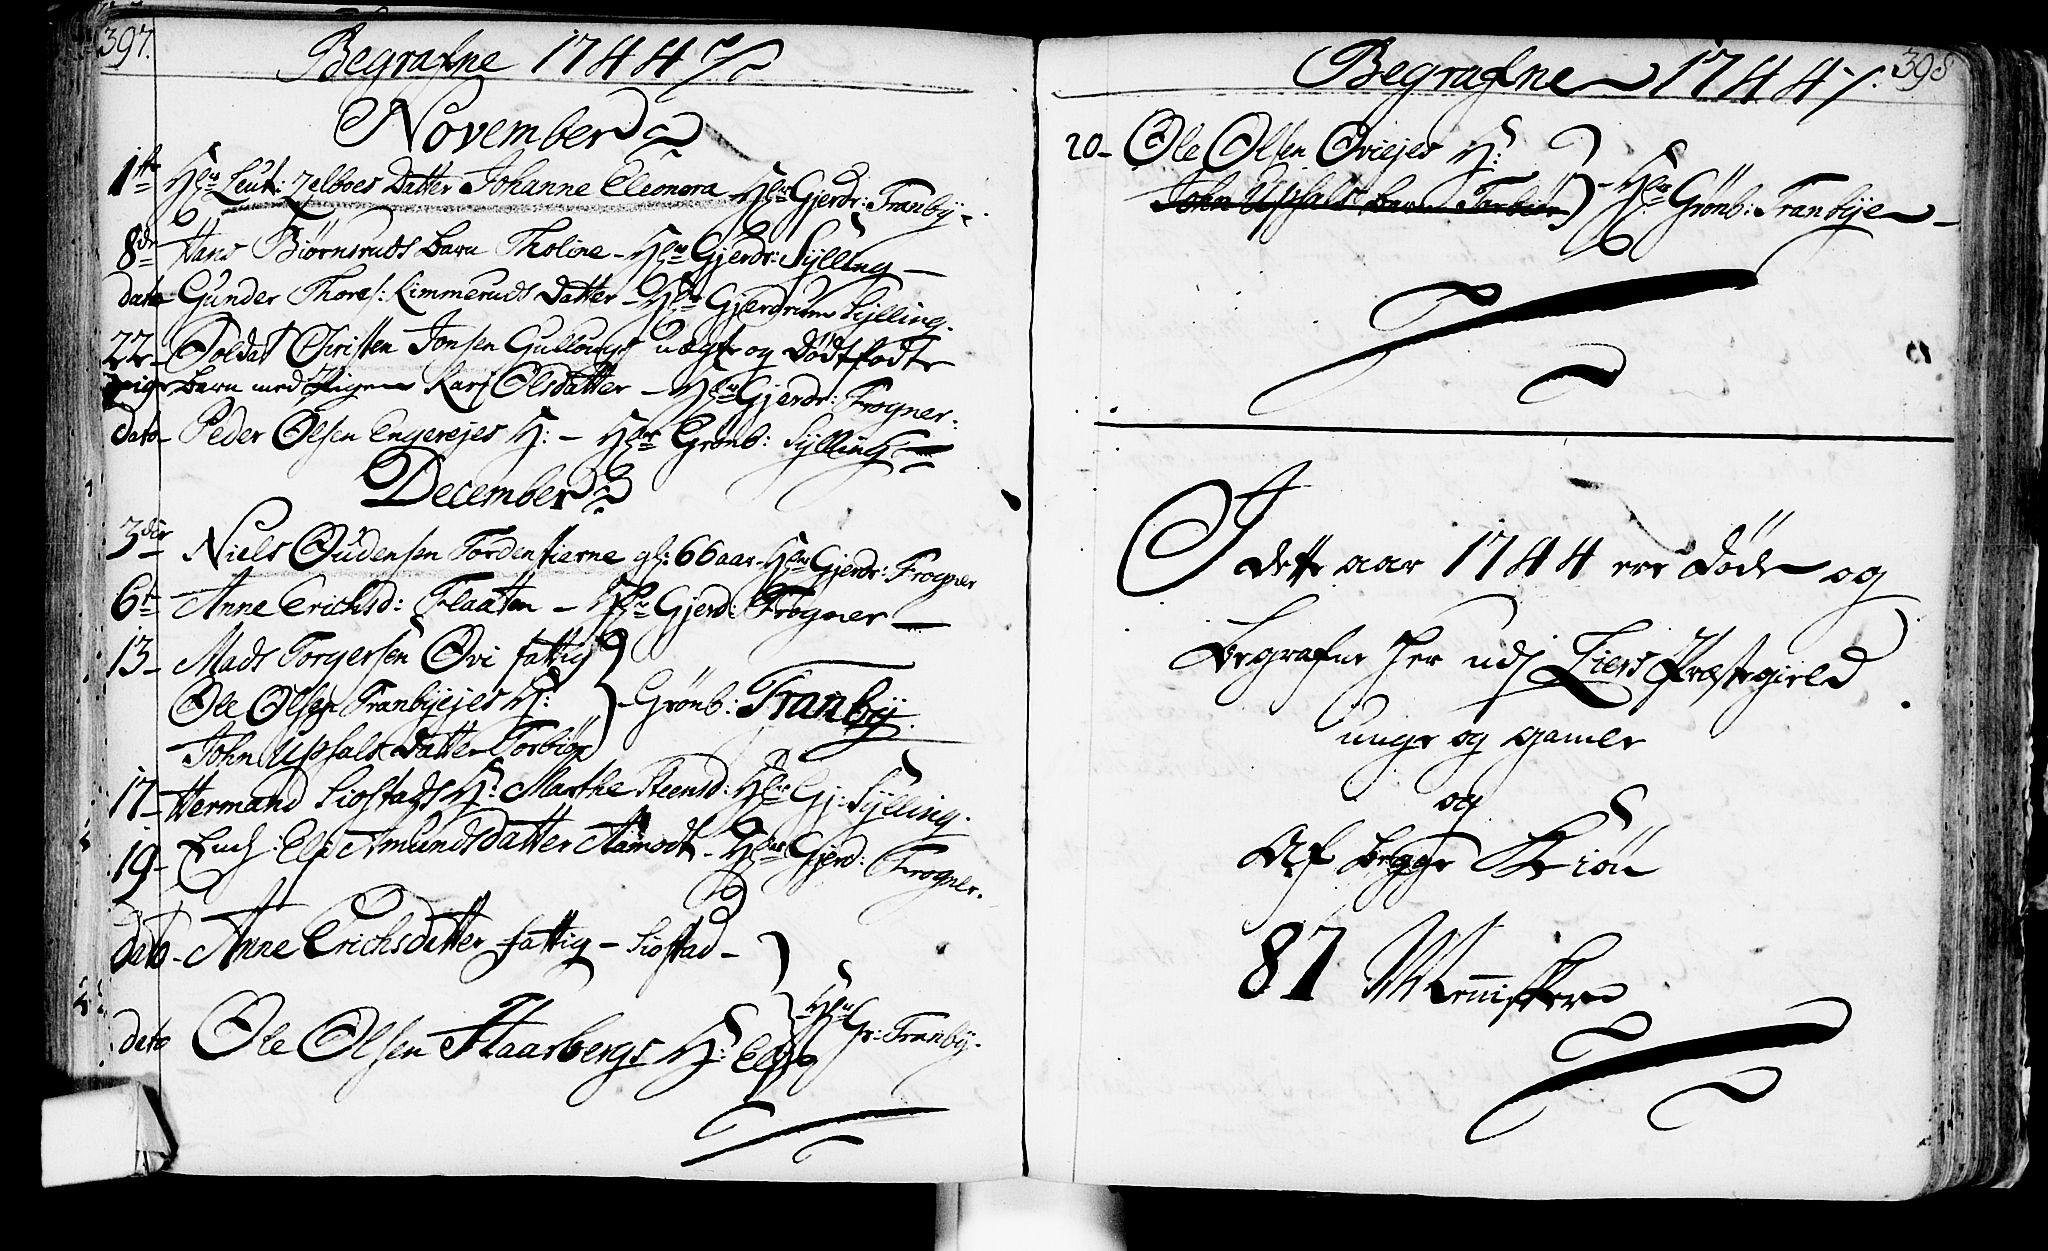 397.
Begrafne 1744
November
1te Hr Leut: Zelboes Datter Johanne Eleonora - Hr Gjerdr: Tranby
8de Hans Biørnsruds barn Tholine - Hr Gjerdr: Sylling
dato Gunder Thores: Kimmeruds Datter - Hr Gjerdrum Sylling.
22 - Soldat Christen Jonsen Gullougs uægte og dødfødte
barn med Pigen Kari Olsdatter - Hr Gjerdr: Frogner.
dato - Peder Olsen Engerejes H: - Hr Grønb: Sylling
December
3die Niels Oudensen Tordenstierne gl: 66 aar - Hr Gjerdr: Frogner
6te Anne Erichsd: Flaaten - Hr Gjerd: Frogner
13 - Mads Torgersen Ovi fattig
Ole Olsen Tranbyejes H: - Grönb: Tranbÿ.
John Upsals Datter Torbiør
17 - Hermand Siostads H: Marthe Steensd: Hr Gj: Sylling.
19 - Else Amundsdatter Aamodt - Hr Gjerd: Frogner.
dato - Anne Erichsdatter fattig - Siostad -
dato Ole Olsen Haarbergs H: Else Hr Gr: Tranbÿ.
398
Begrafne 1744
20 - Ole Olsen Oviejes H:
John Upsals barn Torbiør - Hr Grönb: Tranbÿe
I dette aar 1744 ere døde og
begrafne her udj Liers Præstegield
unge og gamle
og
Af begge Kiön
87 Mennisker